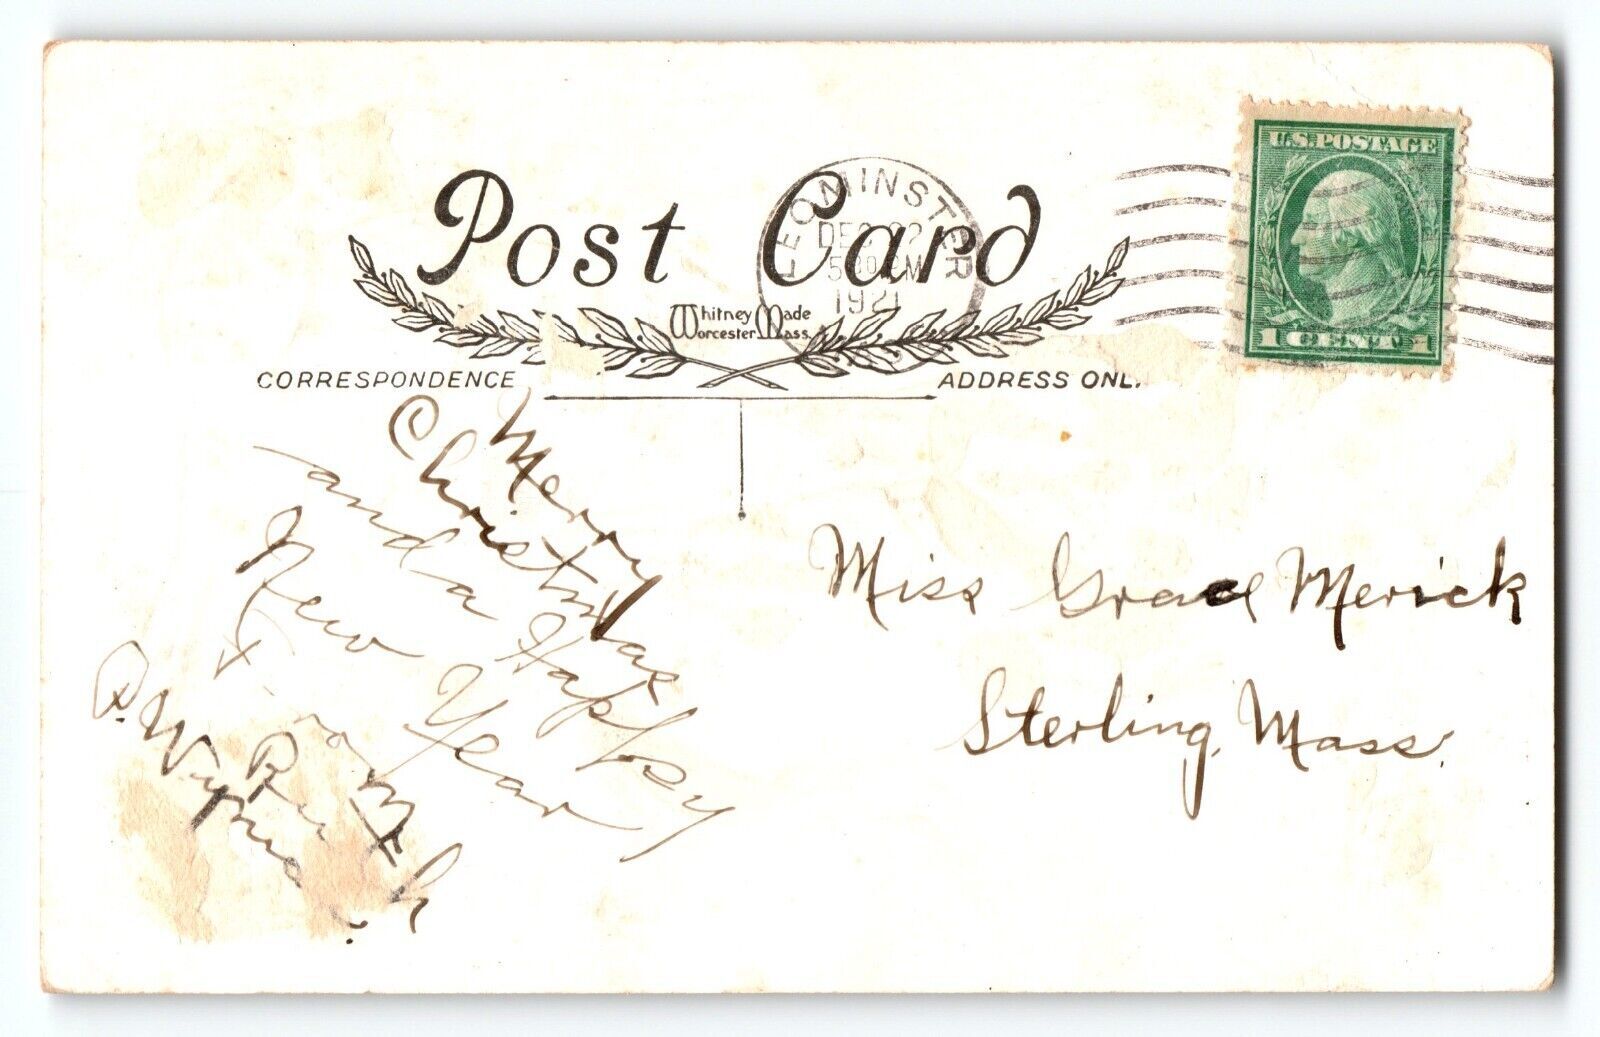 Post Card
Whitney Made
Worcester Mass.
LEOMINSTER
DEC 22
5 30 PM
1921
U.S. POSTAGE
1 CENT 1
CORRESPONDENCE
ADDRESS ONL
Merry
Christmas
and a Happy
New Year
From
Ruth
Miss Grace Merick
Sterling, Mass.